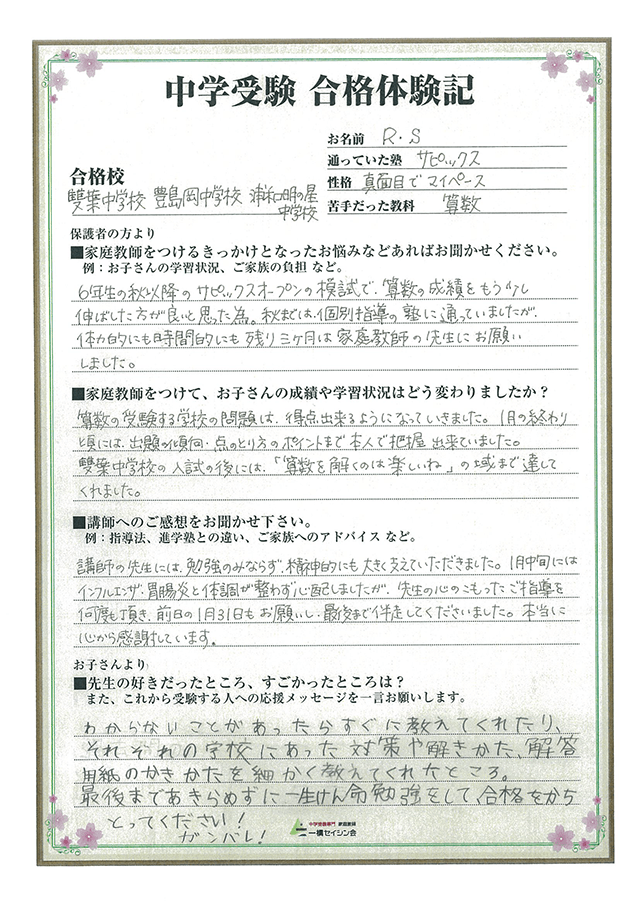 中学受験 合格体験記
お名前 R・S
通っていた塾 サピックス
性格 真面目でマイペース
苦手だった教科 算数
合格校
雙葉中学校 豊島岡中学校 浦和明の星
中学校
保護者の方より
■家庭教師をつけるきっかけとなったお悩みなどあればお聞かせください。
例：お子さんの学習状況、ご家族の負担 など。
6年生の秋以降のサピックスオープンの模試で、算数の成績をもう少し
伸ばした方が良いと思った為。秋までは、個別指導の塾に通っていましたが、
体力的にも時間的にも残り三ヶ月は家庭教師の先生にお願い
しました。
■家庭教師をつけて、お子さんの成績や学習状況はどう変わりましたか？
算数の受験する学校の問題は、得点出来るようになっていきました。1月の終わり
頃には、出題の傾向・点のとり方のポイントまで本人で把握出来ていました。
雙葉中学校の入試の後には、「算数を解くのは楽しいね」の域まで達して
くれました。
■講師へのご感想をお聞かせ下さい。
例：指導法、進学塾との違い、ご家族へのアドバイス など。
講師の先生には、勉強のみならず、精神的にも大きく支えていただきました。1月中旬には
インフルエンザ・胃腸炎と体調が整わず心配しましたが、先生の心のこもったご指導を
何度も頂き、前日の1月31日もお願いし、最後まで伴走してくださいました。本当に
心から感謝しています。
お子さんより
■先生の好きだったところ、すごかったところは？
また、これから受験する人への応援メッセージを一言お願いします。
わからないことがあったらすぐに教えてくれたり、
それぞれの学校にあった対策や解きかた、解答
用紙のかきかたを細かく教えてくれたところ。
最後まであきらめずに一生けん命勉強をして、合格をかち
とってください！
ガンバレ！
中学受験専門 家庭教師
一橋セイシン会